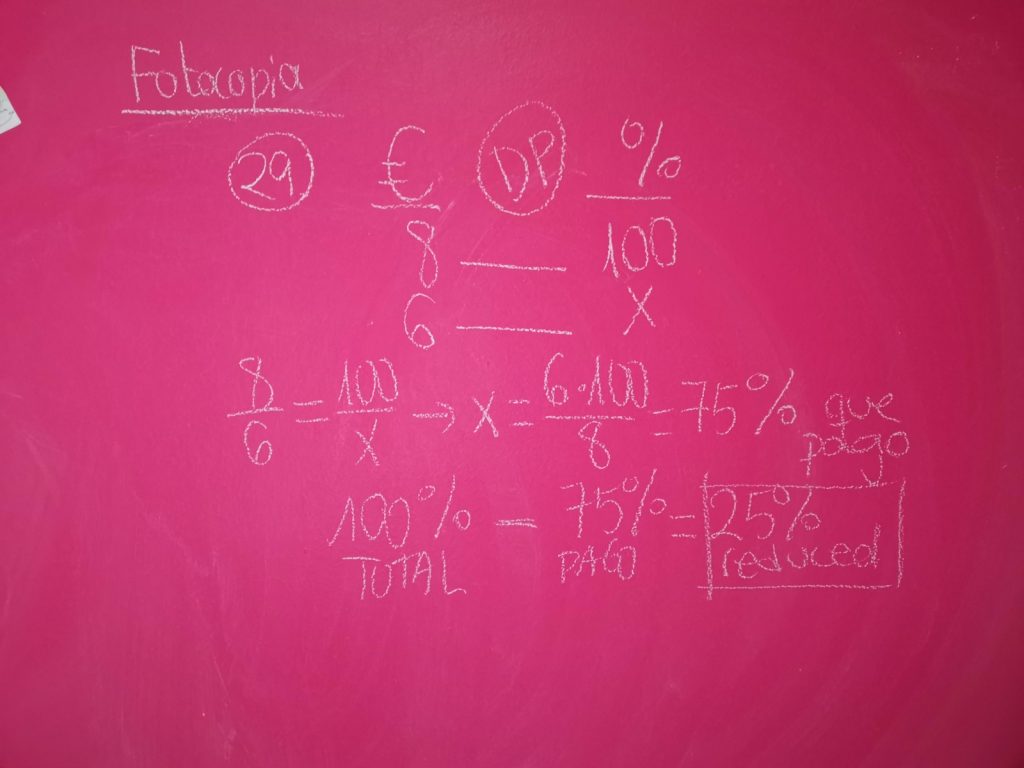 Fotocopia
29 € DP %
8 ___ 100
6 ___ X
8/6 = 100/X → X = 6·100/8 = 75% que pago
100% - 75% = 25%
TOTAL PAGO reduced